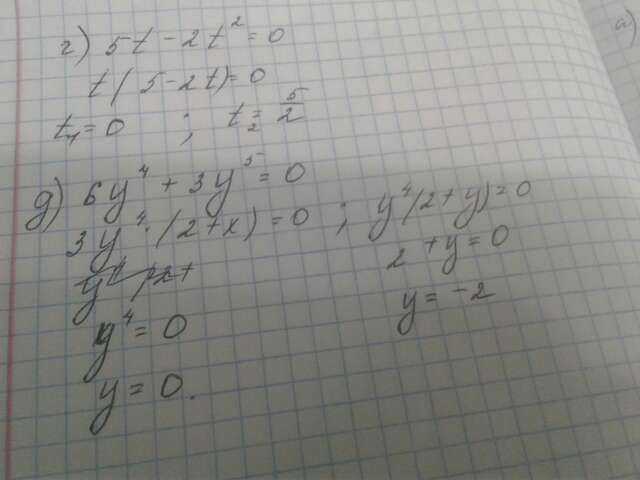 г) 5t - 2t² = 0
t(5 - 2t) = 0
t₁ = 0 ; t₂ = 5/2
д) 6y⁴ + 3y⁵ = 0
3y⁴ · (2 + x) = 0 ; y⁴(2 + y) = 0
y⁴(2+
2 + y = 0
y⁴ = 0
y = -2
y = 0.
а)